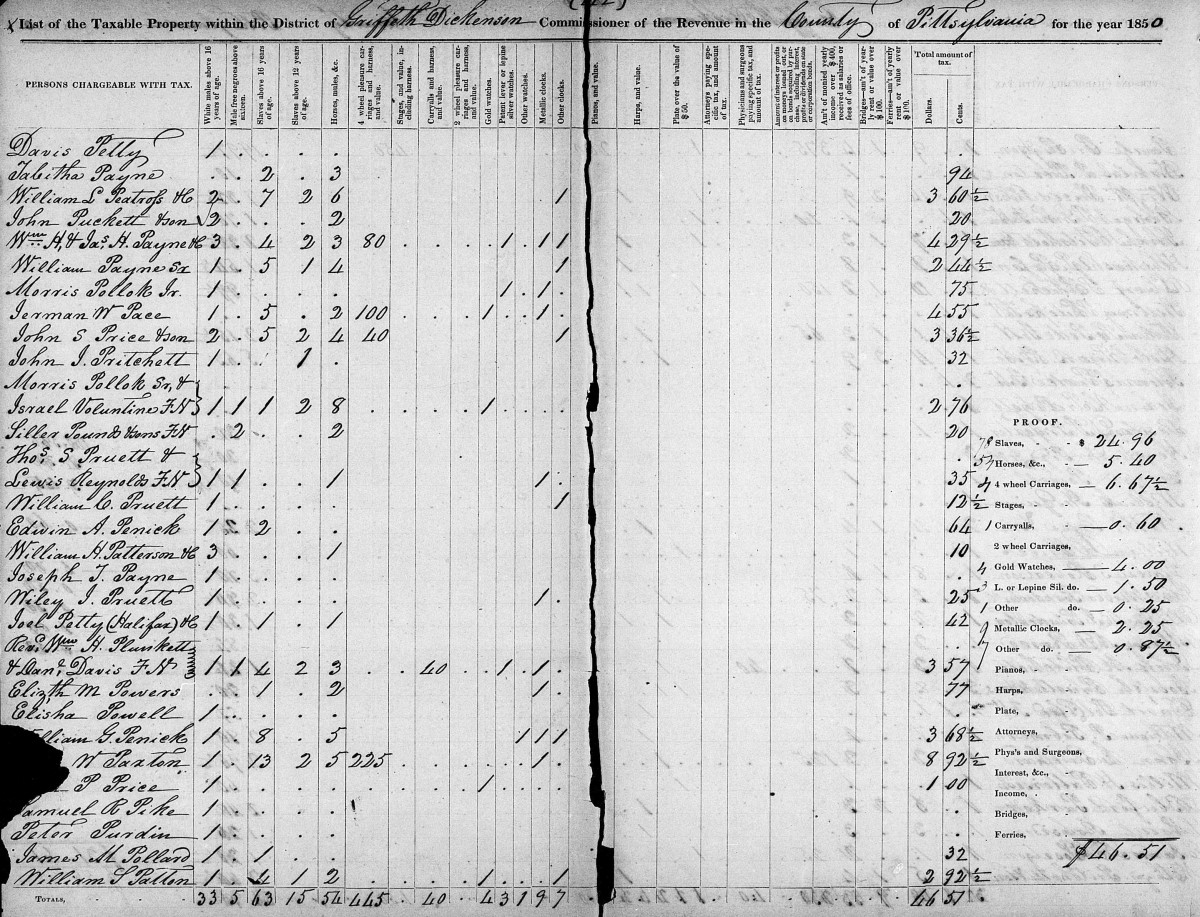 List of the Taxable Property within the District of Griffeth Dickenson Commissioner of the Revenue in the County of Pittsylvania for the year 1850
PERSONS CHARGEABLE WITH TAX.
White males above 16 years of age.
Male free negroes above sixteen.
Slaves above 16 years of age.
Slaves above 12 years of age.
Horses, mules, &c.
4 wheel pleasure carriages and harness, and value.
Stages, and value, including harness.
Carryalls, and harness, and value.
2 wheel pleasure carriages and harness, and value.
Gold watches.
Patent lever or lepine silver watches.
Other watches.
Metallic clocks.
Other clocks.
Pianos, and value.
Harps, and value.
Plate over the value of $50.
Attorneys paying specific tax, and amount of tax.
Physicians and surgeons paying specific tax, and amount of tax.
Am't of monied yearly income over $400, received as salaries or fees of office.
Bridges—am't of yearly rent or value over $100.
Ferries—am't of yearly rent or value over $100.
Total amount of tax.
Dollars.
Cents.
Davis Petty 1 . . . . .
Tabitha Payne . . 2 . 3 94
William L Peatross &C 2 . 7 2 6 1 3 60½
John Puckett & son 2 . . . 2 20
Wm H, & Jas. H. Payne &C 3 . 4 2 3 80 . . . . 1 . 1 1 4 29½
William Payne Sr 1 . 5 1 4 1 2 44½
Morris Pollok Jr. 1 . . . . 1 . 1 75
Jerman W Pace 1 . 5 . 2 100 1 . . 1 4 55
John S Price & son 2 . 5 2 4 40 1 3 36½
John J. Pritchett 1 . . 1 . 32
Morris Pollok Sr, & .
Israel Voluntine F.N 1 1 1 2 8 . . . . 1 2 76
Siller Pounds & sons F.N . 2 . . 2 20
Thos. S Pruett & .
Lewis Reynolds F.N 1 1 . . 1 1 35
William C. Pruett 1 . . . . 1 12½
Edwin A. Penick 1 2 . . 64
William H. Patterson &C 3 . . . 1 10
Joseph T. Payne 1 . . . . .
Wiley J. Pruett 1 . . . . 1 25
Joel Petty (Halifax) &C 1 . 1 . 1 42
Revd. Wm H. Plunkett
& Danl. Davis F.N 1 1 4 2 3 . . 40 . . 1 . 1 . 3 57
Elizth M Powers . . 1 . 2 1 77
Elisha Powell 1 . . . . .
William G. Penick 1 . 8 . 5 1 1 1 3 68½
W Paxton 1 . 13 2 5 225 1 8 92½
P Price 1 . . . . 1 1 00
Samuel R Pike 1 . . . . .
Peter Purdin 1 . . . . .
James M Pollard 1 . 1 . . 32
William S Patton 1 . 4 1 2 1 . . . 1 2 92½
TOTALS, 33 5 63 15 54 445 . 40 . 4 3 1 9 7 46 51
PROOF.
78 Slaves, - - $ 24.96
54 Horses, &c., - — 5.40
4 4 wheel Carriages, — 6.67½
Stages, - -
1 Carryalls, - — 0.60
2 wheel Carriages,
4 Gold Watches, — 4.00
3 L. or Lepine Sil. do. — 1.50
1 Other do. — 0.25
9 Metallic Clocks, — 2.25
7 Other do. — 0.87½
Pianos, - -
Harps, - -
Plate, - -
Attorneys, -
Phys's and Surgeons,
Interest, &c., -
Income, -
Bridges, -
Ferries, -
$46.51